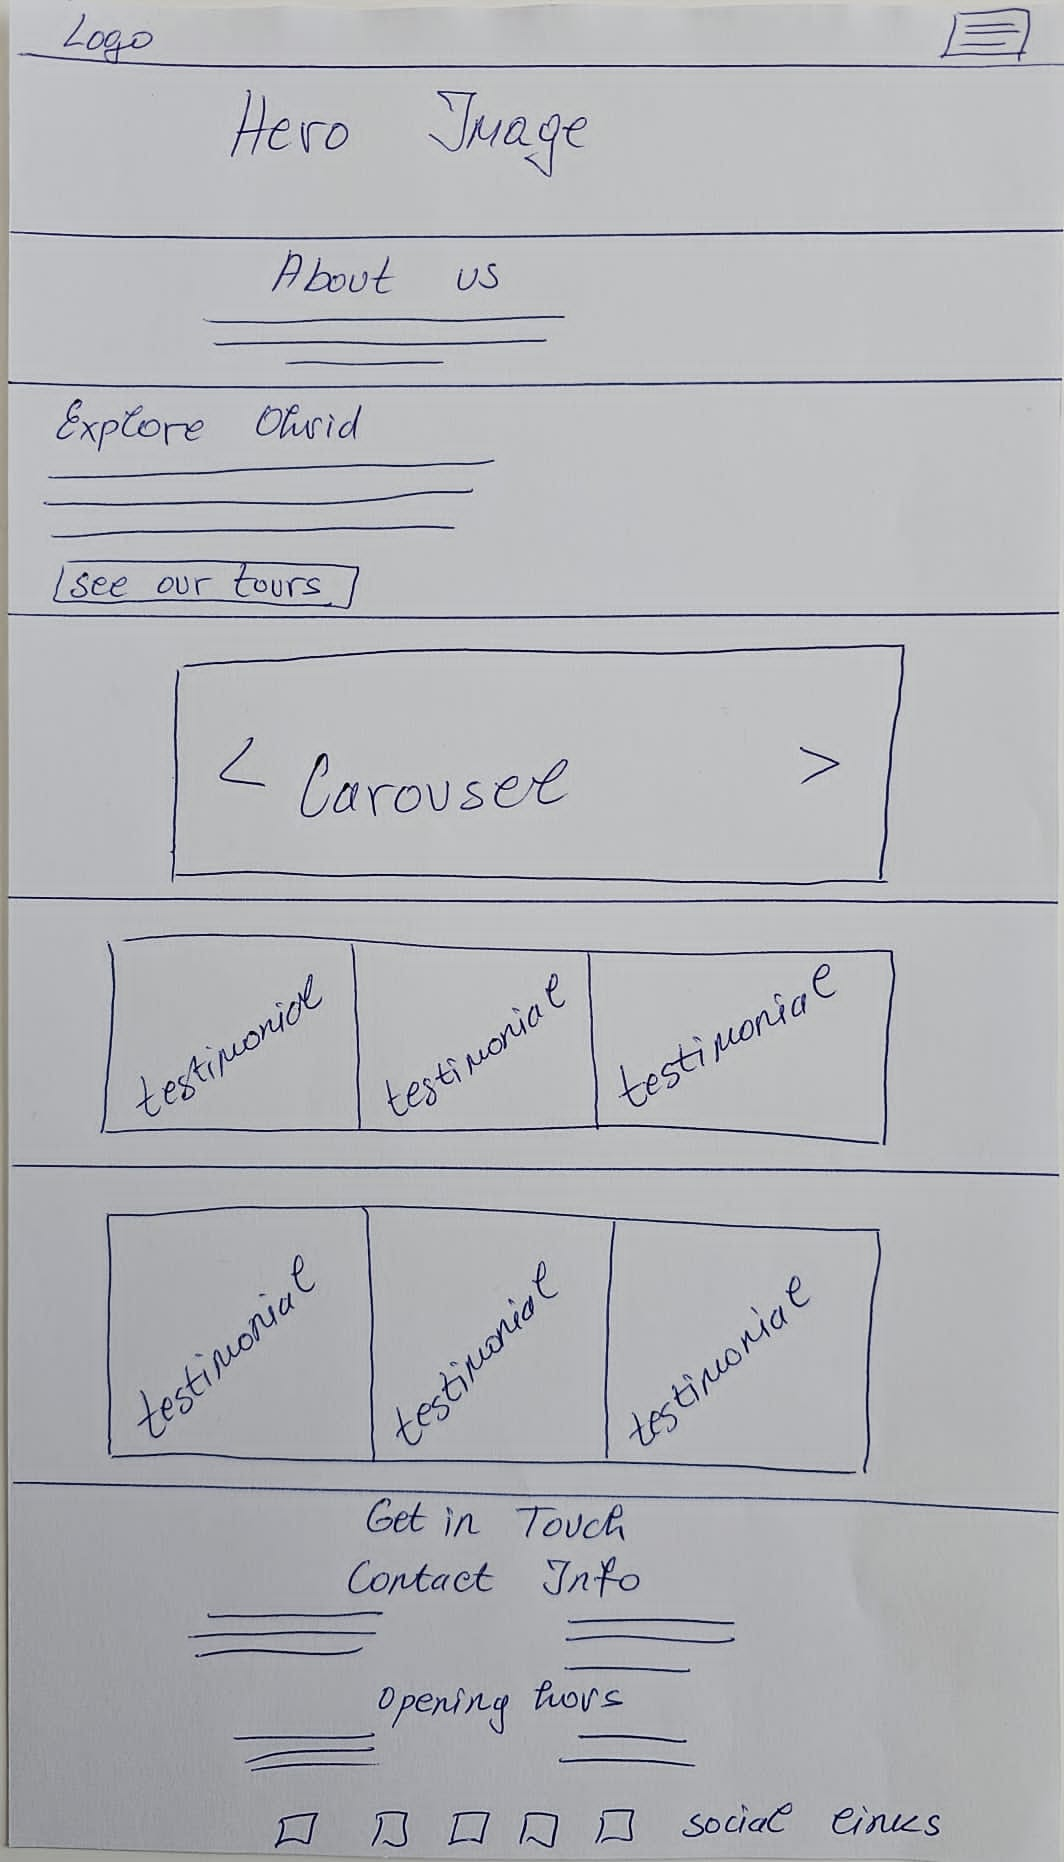 Logo
Hero Image
About us
Explore Ohrid
see our tours
< Carousel >
testimonial testimonial testimonial
testimonial testimonial testimonial
Get in Touch
Contact Info
Opening hors
social links